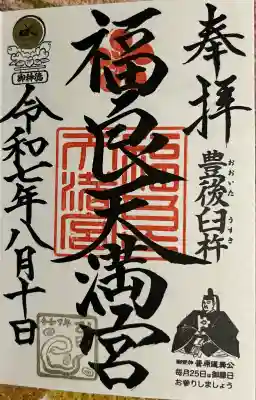 奉拝
豊後臼杵
おおいた うすき
福良天満宮
令和七年八月十日
御神徳
御祭神 菅原道真公
毎月25日は御縁日
お参りしましょう